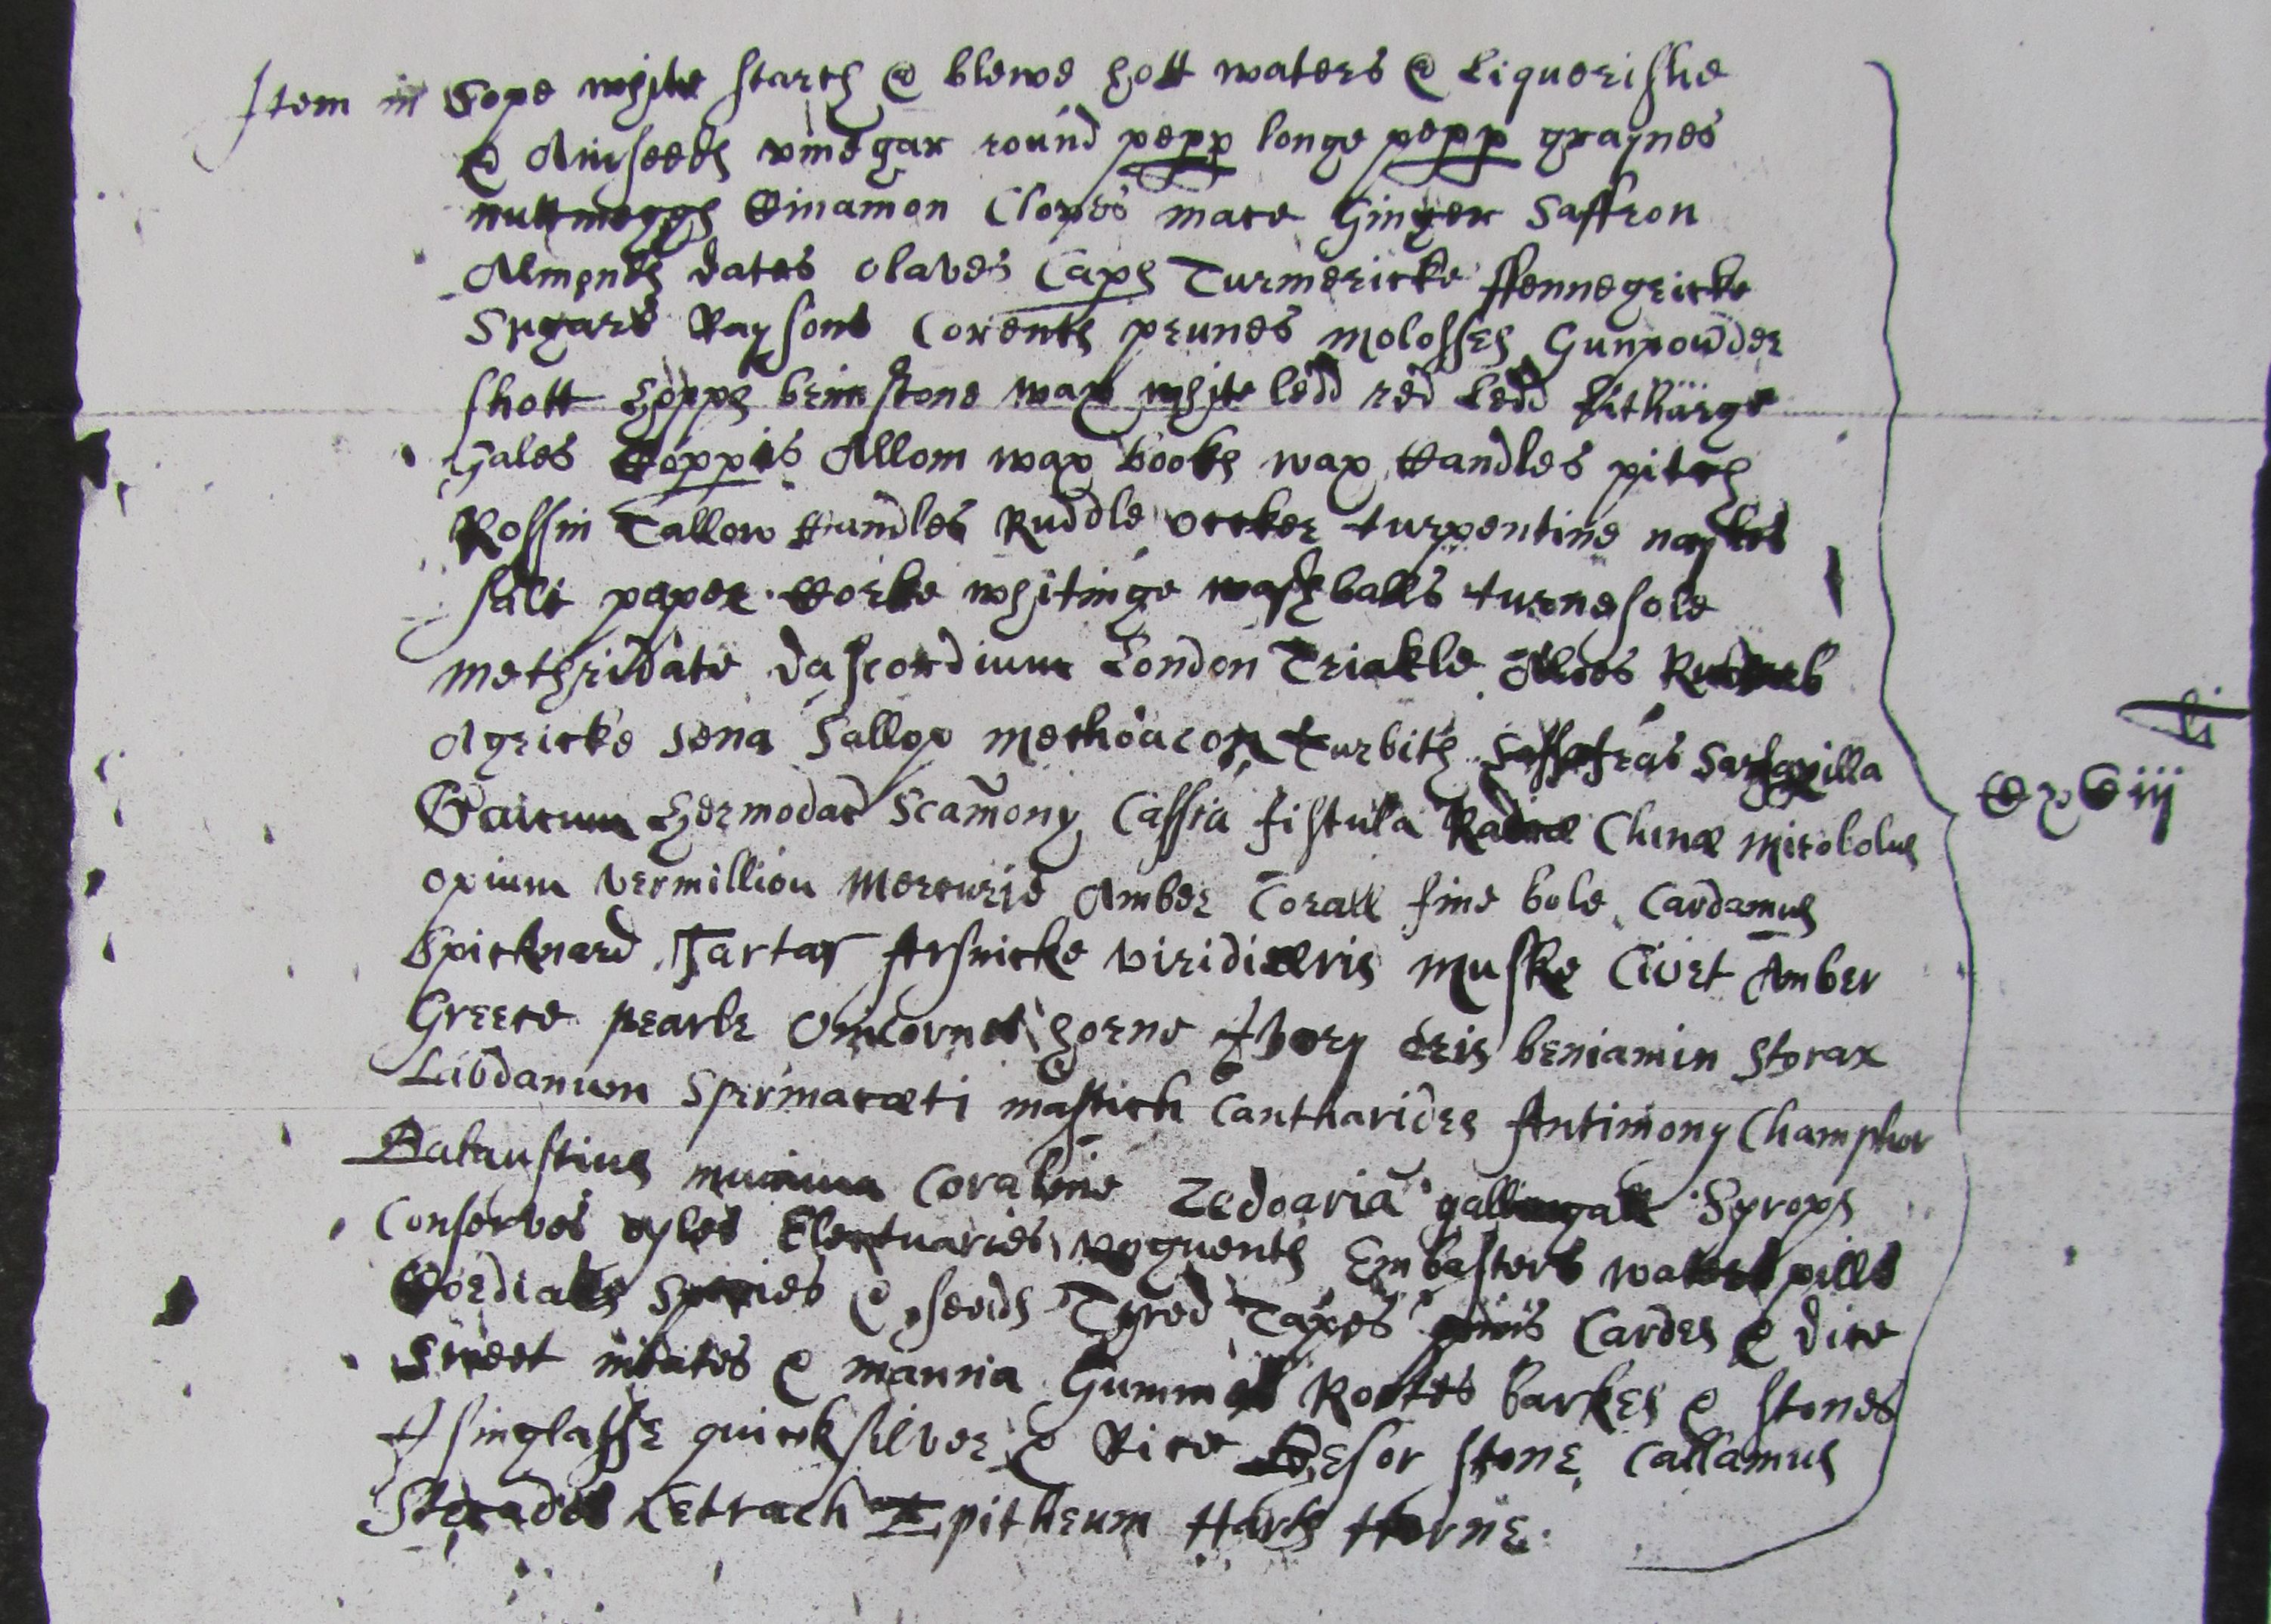 Item in Sope white starch & blewe hott waters & Liquerishe
& Anisseeds vinegar round pepp longe pepp graynes
nuttmeggs Cinamon Cloves mace Ginger Saffron
Almonds dates olaves Caps Turmericke ffennegricke
Sugars Raysons Corents prunes molosses Gunpowder
shott hopps brimstone wax white ledd red Ledd litharge
Gales Coppis Allom wax books wax Candles pitch
Rossin Tallow Candles Ruddle occker turpentine nayles
salt paper Corke whitinge washballs turnesole
methridate dascordium London Triakle Alloes Rubarb
Agricke sena Jallop mechoacon turbith Sassafras Sarsapilla
Gaicum hermodac Scamony Cassia fistula Radice Chinæ Mirobolus
opium vermillion Mercurie Amber Corall fine bole Cardamus
Spicknard Tartar Arsnicke viridiæris Muske Civet Amber
Greece pearle Unicornes horne Ivory eris beniamin Storax
Labdanum Spermacæti mastich Cantharides Antimony Champhor
Balaustius mumia Coraline Zedoaria gallingall Syrops
Conserves oyles Electuaries unguents Emplasters waters pills
Cordialls Species & seeds Thred Tapes pinns Cardes & dice
Sweet meates & manna Gummes Rootes barkes & stones
Isinglasse quicksilver & Rice Besor stone Callamus
Stecados Cetrach Epitheum Harts Horne.
li
cxviij